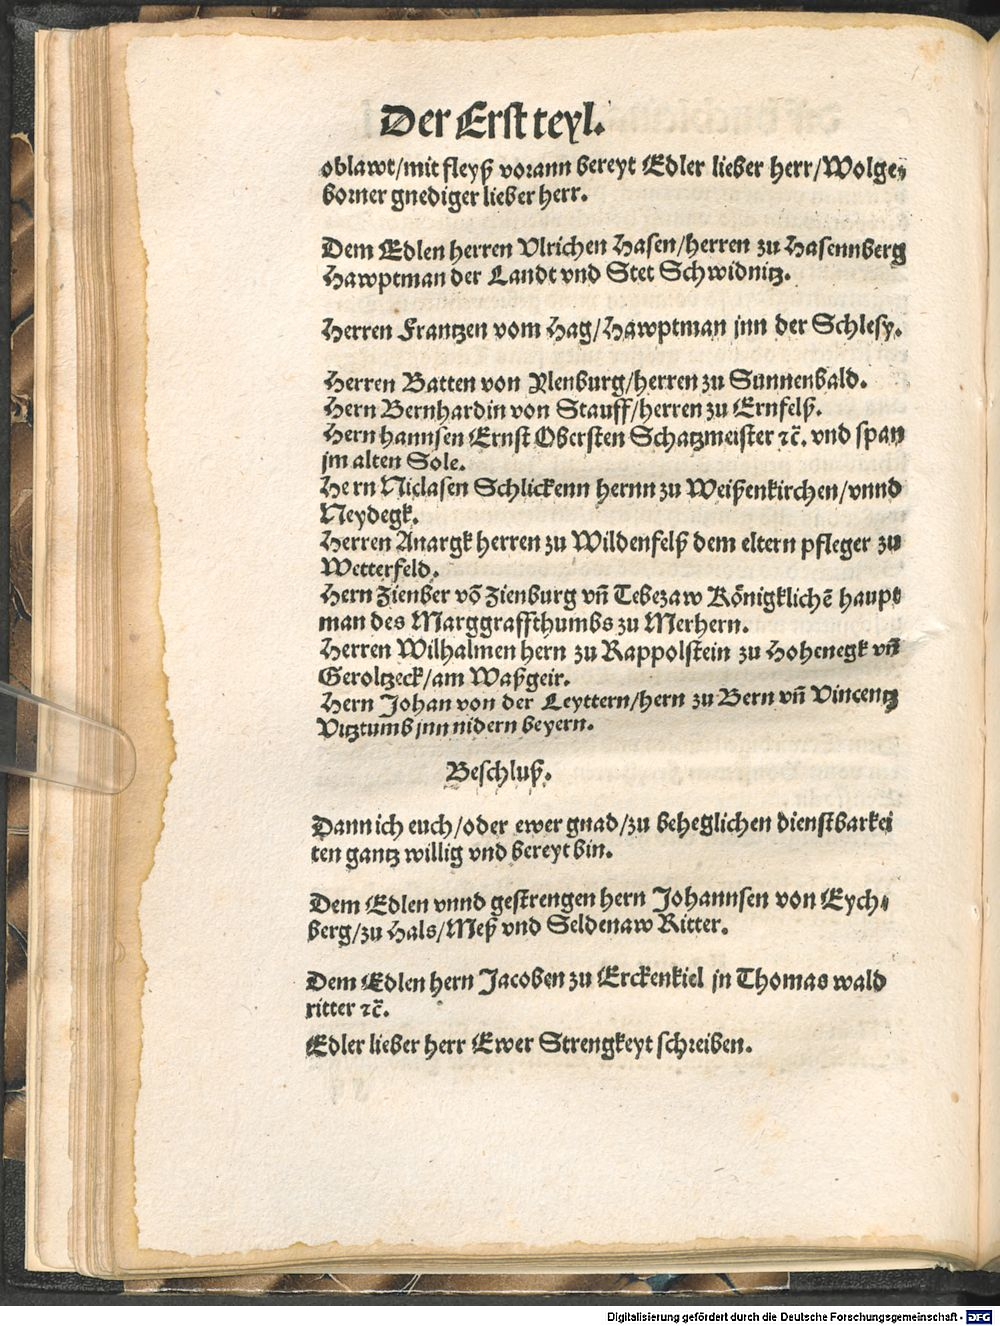 Der Erst teyl.
oblawt/mit fleyß vorann bereyt Edler lieber herr/Wolge-
borner gnediger lieber herr.
Dem Edlen herren Vlrichen Hasen/herren zu Hasennberg
Hawptman der Landt vnd Stet Schwidnitz.
Herren Frantzen vom Hag/Hawptman jnn der Schlesy.
Herren Batten von Ylenburg/herren zu Sunnenbald.
Hern Bernhardin von Stauff/herren zu Ernfelß.
Hern hannsen Ernst Obersten Schatzmeister ꝛc̄. vnd span
jm alten Sole.
Hern Niclasen Schlickenn hernn zu Weißenkirchen/vnnd
Neydegk.
Herren Anargk herren zu Wildenfelß dem eltern pfleger zu
Wetterfeld.
Hern Zienber vō Zienburg vn̄ Tebezaw Königklichē haupt
man des Marggraffthumbs zu Merhern.
Herren Wilhalmen hern zu Rappolstein zu Hohenegk vn̄
Geroltzeck/am Waßgeir.
Hern Johan von der Leyttern/hern zu Bern vn̄ Vincentz
Vitztumb jnn nidern beyern.
Beschluß.
Dann ich euch/oder ewer gnad/zu beheglichen dienstbarkei
ten gantz willig vnd bereyt bin.
Dem Edlen vnnd gestrengen hern Johannsen von Eych-
berg/zu Hals/Meß vnd Seldenaw Ritter.
Dem Edlen hern Jacoben zu Erckenkiel jn Thomas wald
ritter ꝛc̄.
Edler lieber herr Ewer Strengkeyt schreiben.
Digitalisierung gefördert durch die Deutsche Forschungsgemeinschaft - DFG